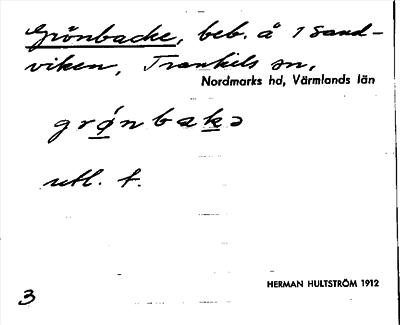 Grönbacke, beb. å 1 Sand-
viken, Trankils sn,
Nordmarks hd, Värmlands län
grǿnbakə
utl. t.
HERMAN HULTSTRÖM 1912
3